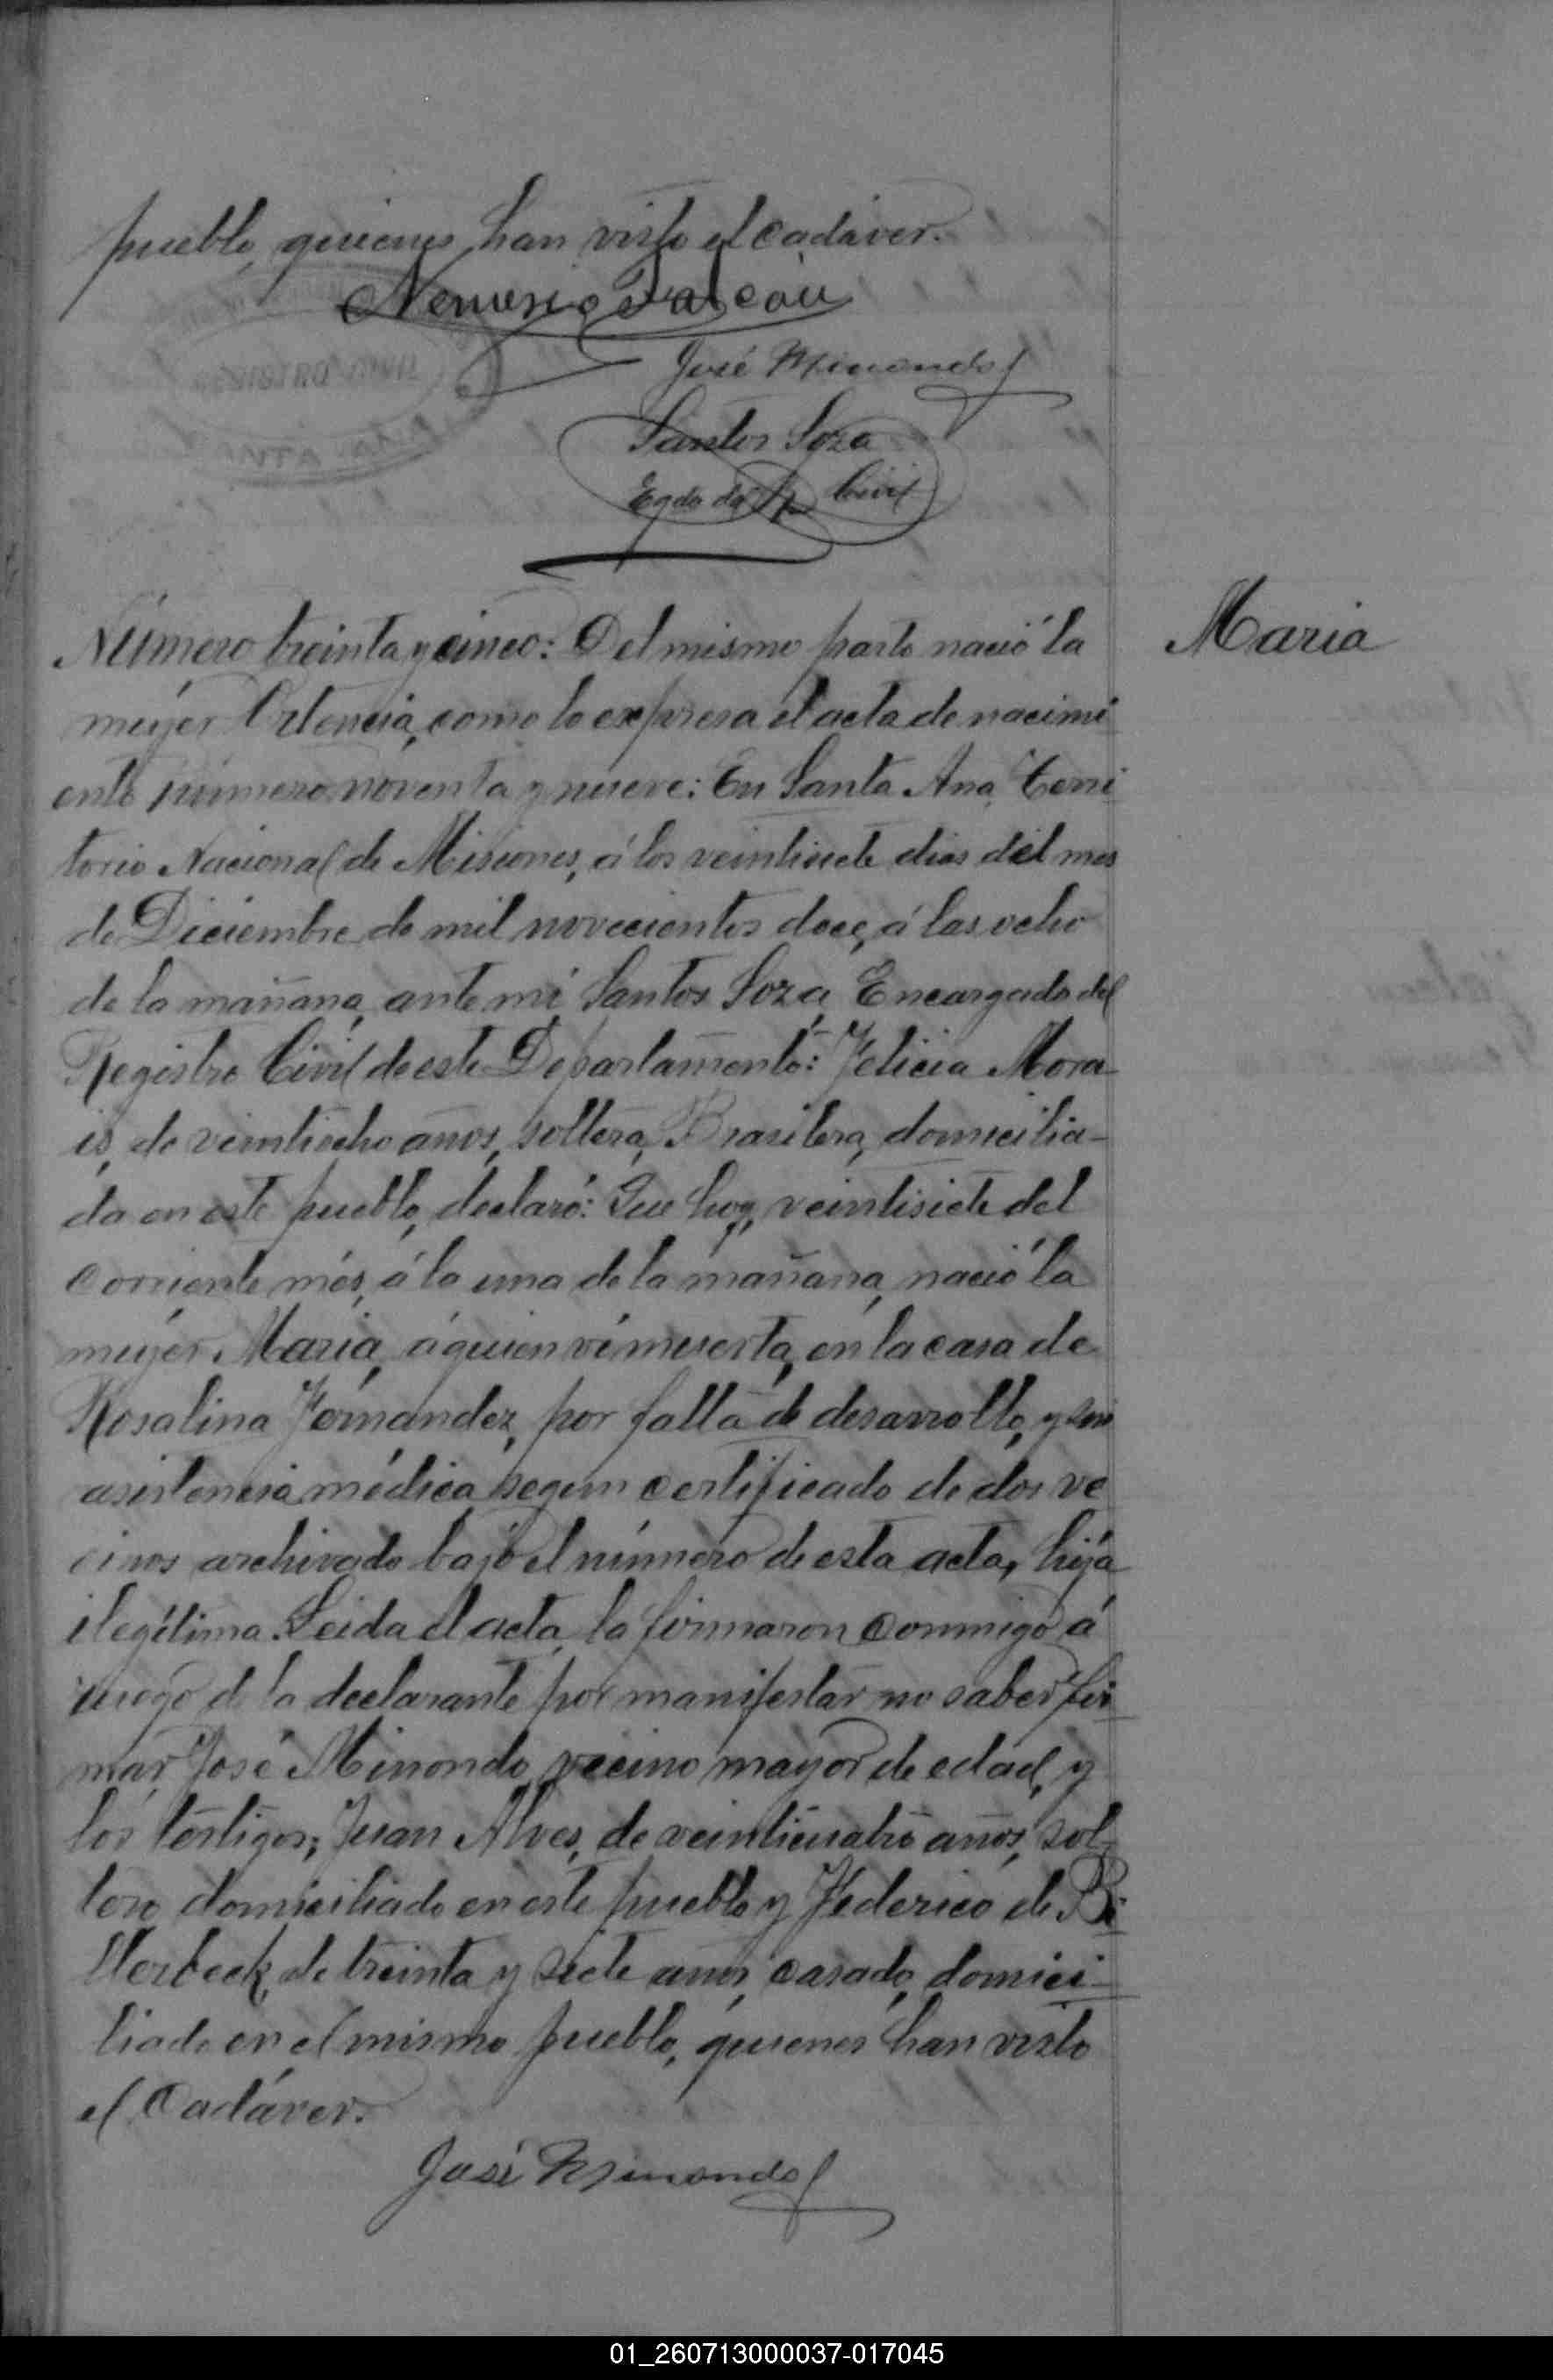 pueblo, quienes han visto el cadáver.
Nemesio Falcón
José Minondo
Santos Soza
Egdo del R Civil
Número treinta y cinco: Del mismo parto nació la
Maria
mujer Ortencia, como lo expresa el acta de nacimi
ento número noventa y nueve: En Santa Ana, Terri
torio Nacional de Misiones, á los veintisiete dias del mes
de Diciembre de mil novecientos doce, á las ocho
de la mañana, ante mí Santos Soza, Encargado del
Registro Civil de este Departamento: Felicia Mora
is, de veintiocho años, soltera, Brasilera, domicilia-
da en este pueblo, declaró: Que hoy, veintisiete del
corriente més, á la una de la mañana, nació la
mujer Maria, á quien ví muerta, en la casa de
Rosalina Fernandez, por falta de desarrollo, y sin
asistencia médica segun certificado de dos ve
cinos archivado bajo el número de esta acta, hija
ilegítima. Leida el acta, la firmaron conmigo á
ruego de la declarante por manifestar no saber fir
mar, José Minondo, vecino mayor de edad, y
los testigos; Juan Alves, de veinticuatro años, sol-
tero domiciliado en este pueblo y Federico de Bi
llerbeck, de treinta y siete años, casado, domici-
liado en el mismo pueblo, quienes han visto
el Cadáver.
José Minondo
01_260713000037-017045